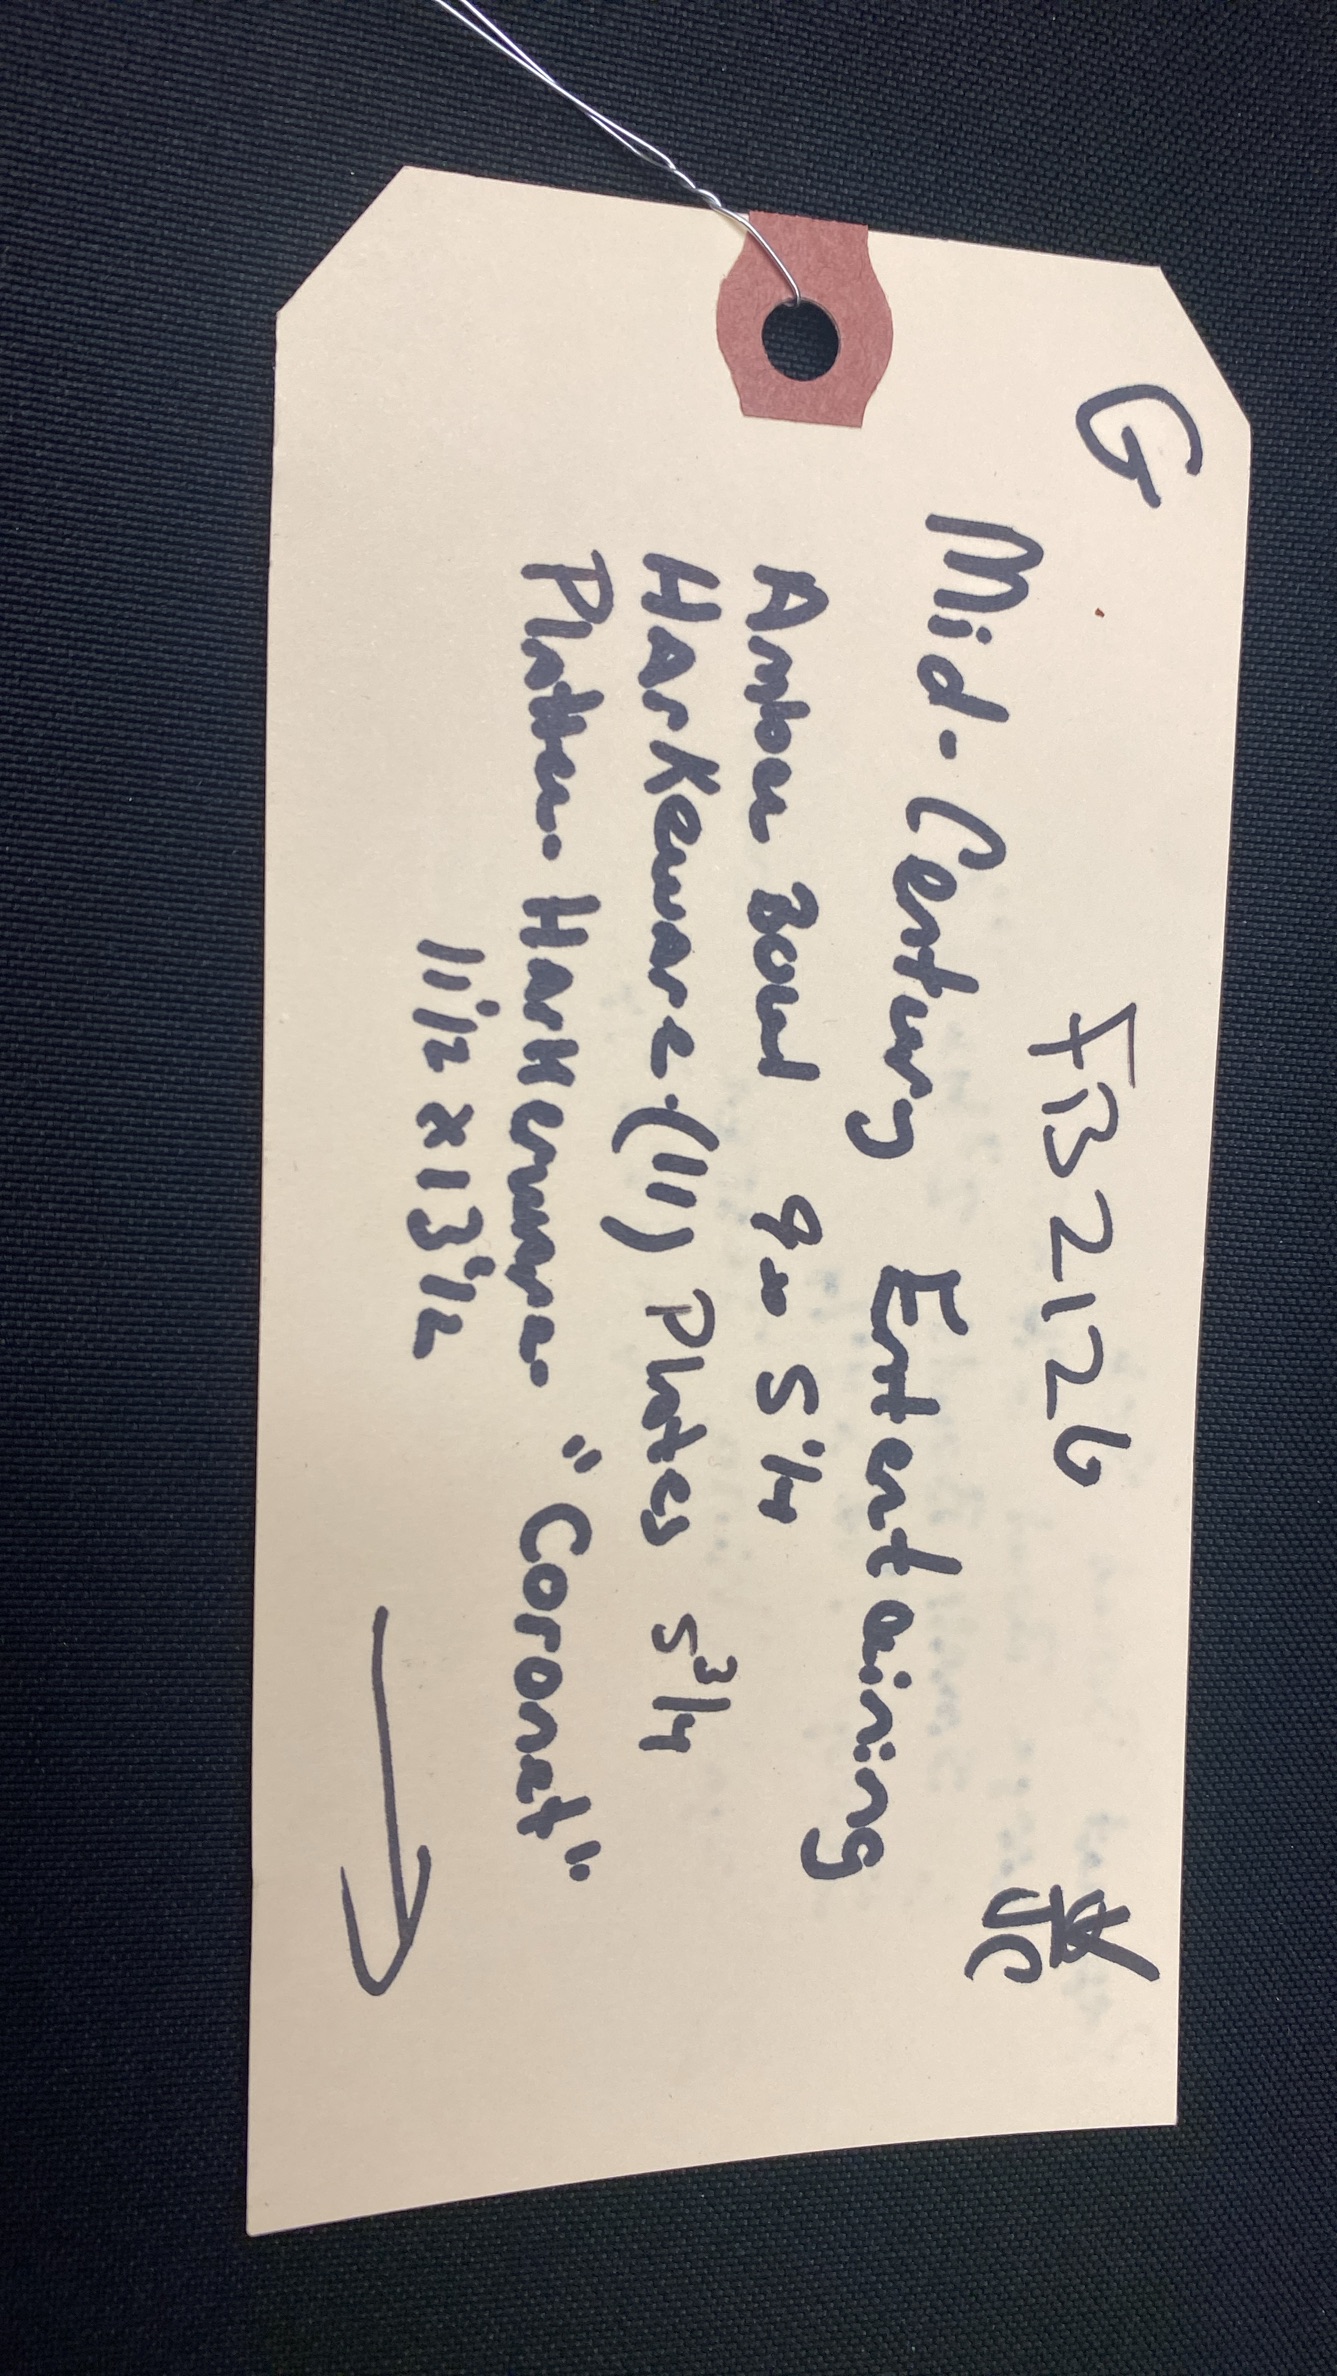 G FB2126
JC
Mid-Century Entertaining
Amber Bowl 9 x 5 1/4
HarKeware-(11) Plates 5 3/4
Platter- HarKerware- "Coronet"
11 1/2 x 13 1/2